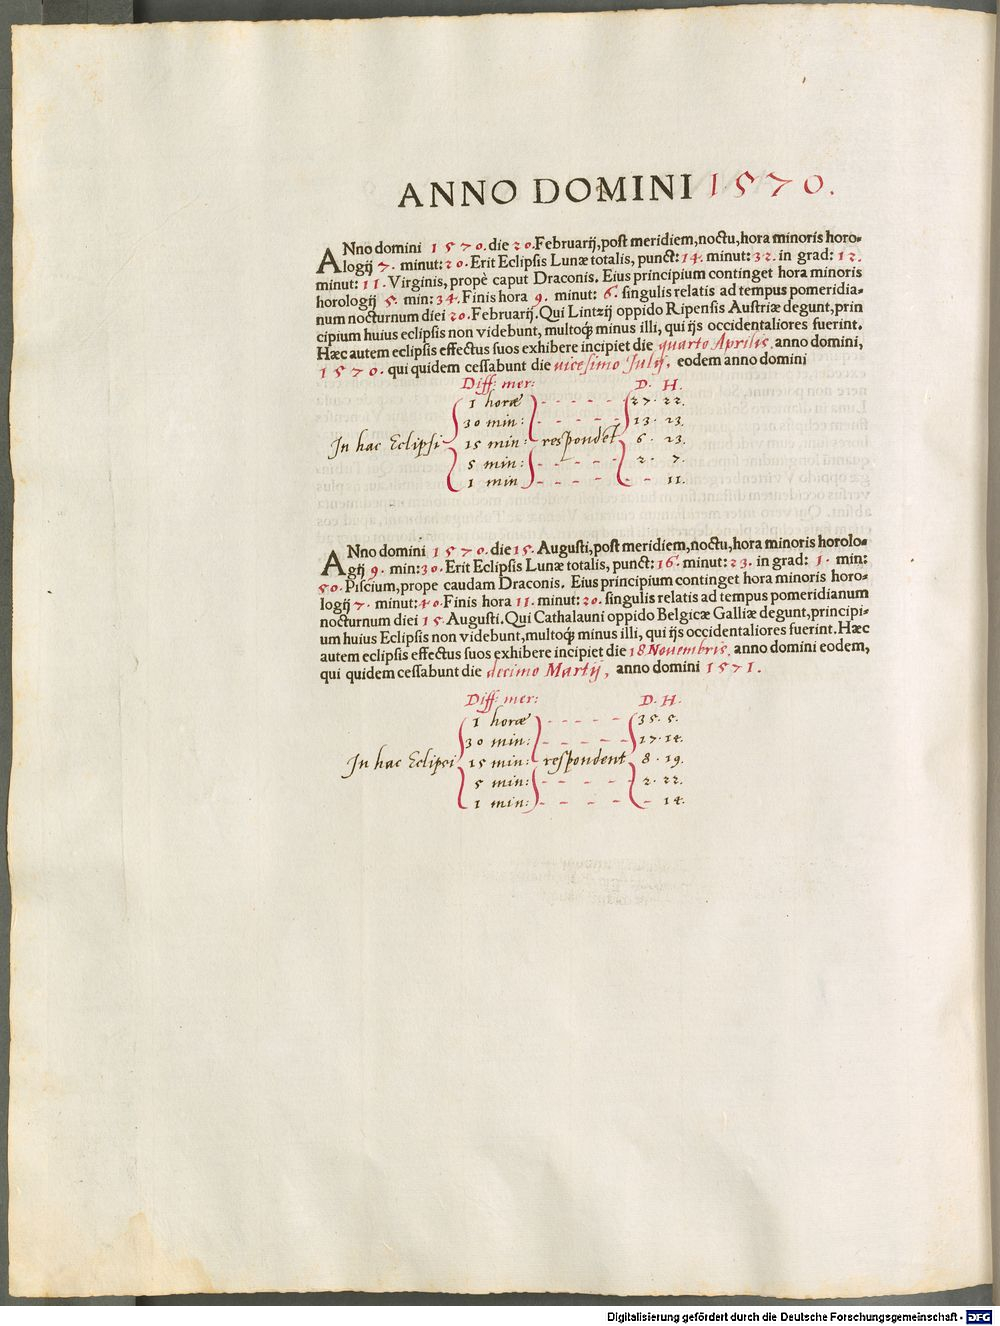 ANNO DOMINI 1570.
ANno domini 1570. die 20. Februarij, post meridiem, noctu, hora minoris horo-
logij 7. minut: 20. Erit Eclipsis Lunæ totalis, punct: 14. minut: 32. in grad: 12.
minut: 11. Virginis, propè caput Draconis. Eius principium continget hora minoris
horologij 5. min: 34. Finis hora 9. minut: 6. singulis relatis ad tempus pomeridia-
num nocturnum diei 20. Februarij. Qui Lintzij oppido Ripensis Austriæ degunt, prin
cipium huius eclipsis non videbunt, multoq; minus illi, qui ijs occidentaliores fuerint.
Hæc autem eclipsis effectus suos exhibere incipiet die quarto Aprilis, anno domini,
1570. qui quidem cessabunt die vicesimo Julij, eodem anno domini
Diff: mer: D. H.
1 horæ - - - - - 27. 22.
30 min: - - - - - 13. 23.
In hac Eclipsi 15 min: respondet 6. 23.
5 min: - - - - 2. 7.
1 min - - - - - - 11.
ANno domini 1570. die 15. Augusti, post meridiem, noctu, hora minoris horolo-
gij 9. min: 30. Erit Eclipsis Lunæ totalis, punct: 16. minut: 23. in grad: 1. min:
50. Piscium, prope caudam Draconis. Eius principium continget hora minoris horo-
logij 7. minut: 40. Finis hora 11. minut: 20. singulis relatis ad tempus pomeridianum
nocturnum diei 15. Augusti. Qui Cathalauni oppido Belgicæ Galliæ degunt, principi-
um huius Eclipsis non videbunt, multoq; minus illi, qui ijs occidentaliores fuerint. Hæc
autem eclipsis effectus suos exhibere incipiet die 18 Novembris, anno domini eodem,
qui quidem cessabunt die decimo Martij, anno domini 1571.
Diff: mer: D. H.
1 horæ - - - - - 35. 5.
30 min: - - - - - 17. 14.
In hac Eclipsi 15 min: respondent 8. 19.
5 min: - - - - - 2. 22.
1 min: - - - - - - 14.
Digitalisierung gefördert durch die Deutsche Forschungsgemeinschaft - DFG